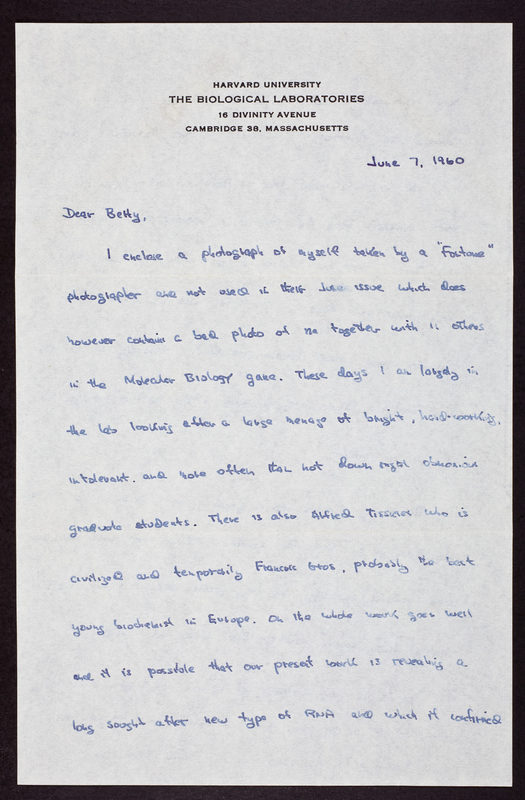 HARVARD UNIVERSITY
THE BIOLOGICAL LABORATORIES
16 DIVINITY AVENUE
CAMBRIDGE 38, MASSACHUSETTS
June 7, 1960
Dear Betty,
I enclose a photograph of myself taken by a "Fortune"
photographer and not used in their June issue which does
however contain a bad photo of me together with 11 others
in the Molecular Biology game. These days I am largely in
the lab looking after a large menage of bright, hard-working,
intolerant, and more often than not down right obnoxious
graduate students. There is also Alfred Tissieres who is
civilized and temporarily Francois Gros, probably the best
young biochemist in Europe. On the whole work goes well
and it is possible that our present work is revealing a
long sought after new type of RNA and which if confirmed